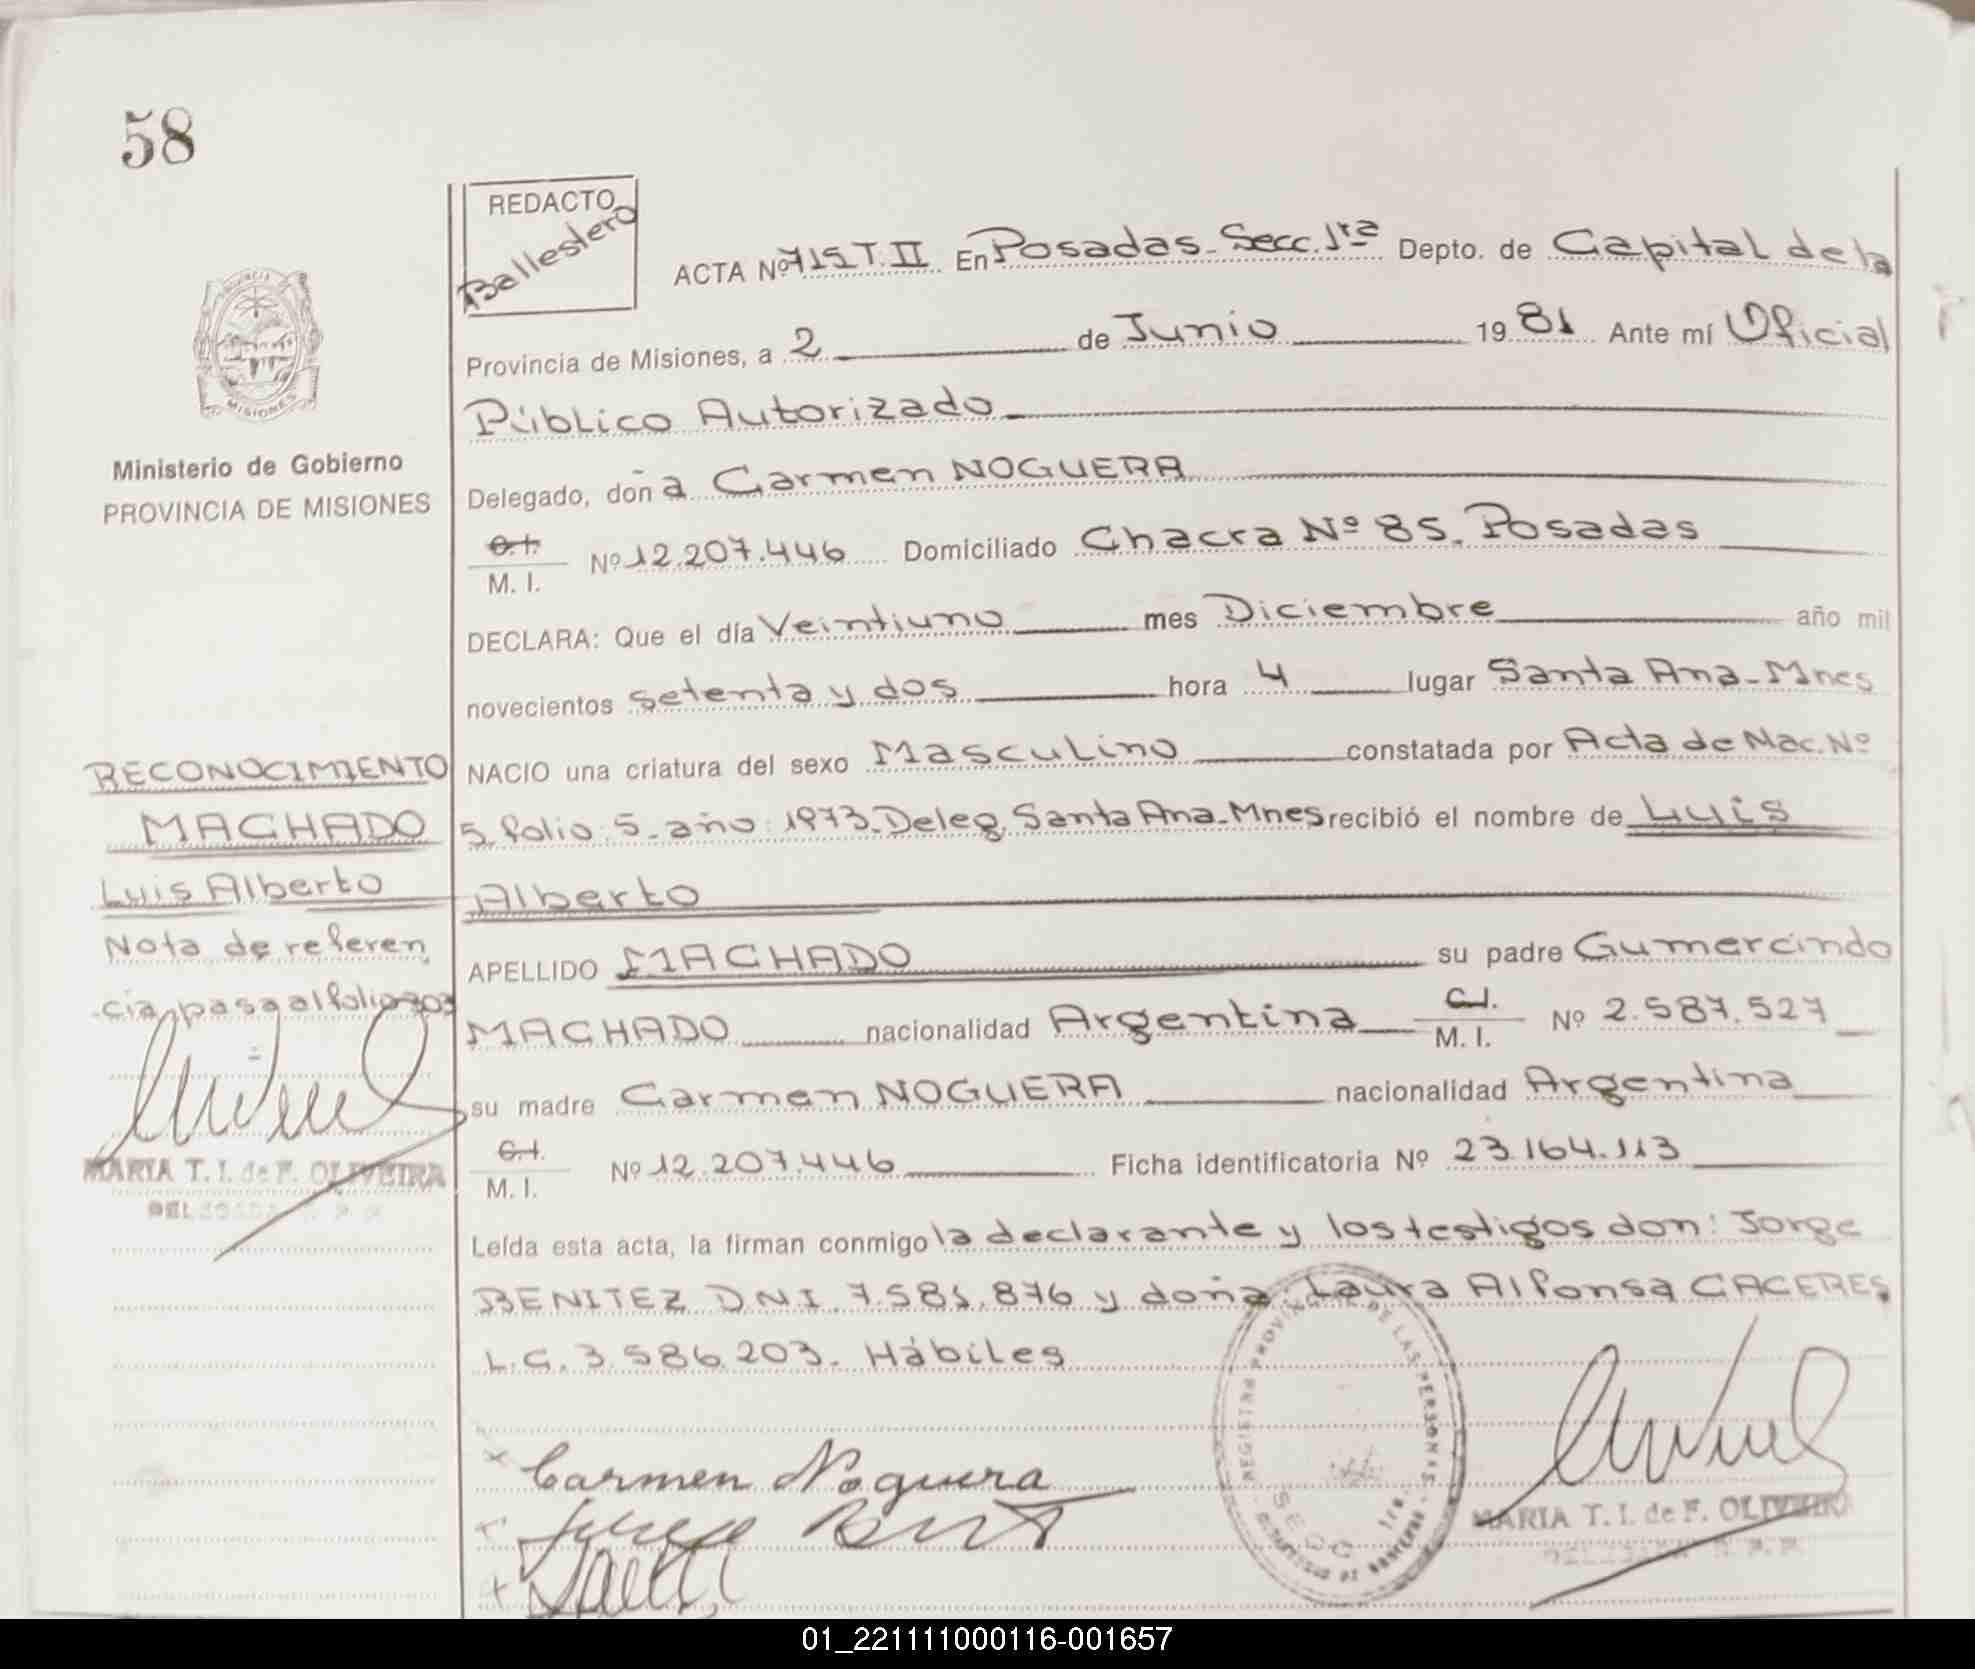 58
REDACTO
Ballestero
ACTA Nº 715 T. II En Posadas - Secc. 1ra Depto. de Capital de la
Provincia de Misiones, a 2 de Junio 1981 Ante mí Oficial
Público Autorizado
Delegado, doña Carmen NOGUERA
C.I.
M. I. Nº 12.207.446 Domiciliado Chacra Nº 85. Posadas
DECLARA: Que el día Veintiuno mes Diciembre año mil
novecientos setenta y dos hora 4 lugar Santa Ana - Mnes
NACIO una criatura del sexo Masculino constatada por Acta de Nac. Nº
5 folio: 5 - año: 1973. Deleg. Santa Ana - Mnes recibió el nombre de Luis
Alberto
APELLIDO MACHADO su padre Gumercindo
MACHADO nacionalidad Argentina C.I.
M. I. Nº 2.587.527
su madre Carmen NOGUERA nacionalidad Argentina
C.I.
M. I. Nº 12.207.446 Ficha identificatoria Nº 23.164.113
Leída esta acta, la firman conmigo la declarante y los testigos don: Jorge
BENITEZ D.N.I. 7.581.876 y doña Laura Alfonsa CACERES,
L.C. 3.586.203. Hábiles
Carmen Noguera
MARIA T. I. de F. OLIVEIRA
REGISTRO PROVINCIAL DE LAS PERSONAS
SECC. 1ra.
PROVINCIA
MISIONES
Ministerio de Gobierno
PROVINCIA DE MISIONES
RECONOCIMIENTO
MACHADO
Luis Alberto
Nota de referen
cia pasa al folio 303
MARIA T. I. de F. OLIVEIRA
01_221111000116-001657